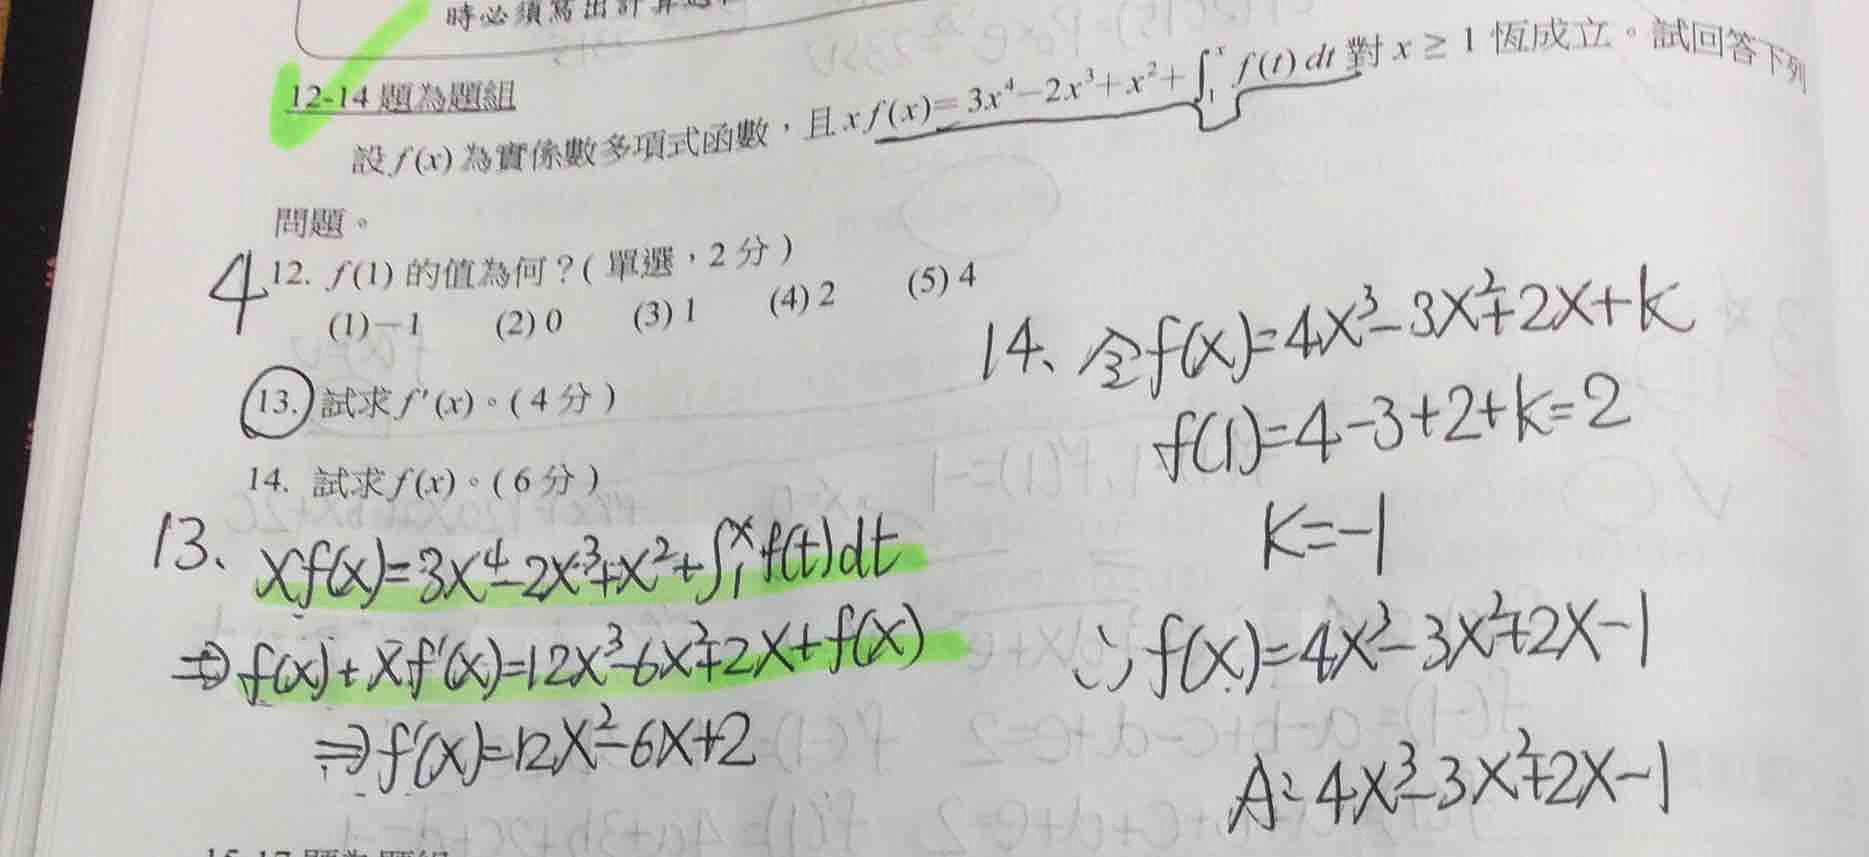 時必須寫出計算過
12-14 題為題組
設 f(x) 為實係數多項式函數，且 xf(x)=3x⁴−2x³+x²+∫₁ˣ f(t) dt 對 x ≥ 1 恆成立。試回答下列
問題。
4 12. f(1) 的值為何？( 單選，2 分 )
(1)−1 (2) 0 (3) 1 (4) 2 (5) 4
13. 試求 f′(x)。( 4 分 )
14. 試求 f(x)。( 6 分 )
13、xf(x)=3x⁴−2x³+x²+∫₁ˣf(t)dt
⇒f(x)+xf′(x)=12x³−6x²+2x+f(x)
⇒f′(x)=12x²−6x+2
14、令f(x)=4x³−3x²+2x+k
f(1)=4−3+2+k=2
k=−1
∴f(x)=4x³−3x²+2x−1
A：4x³−3x²+2x−1